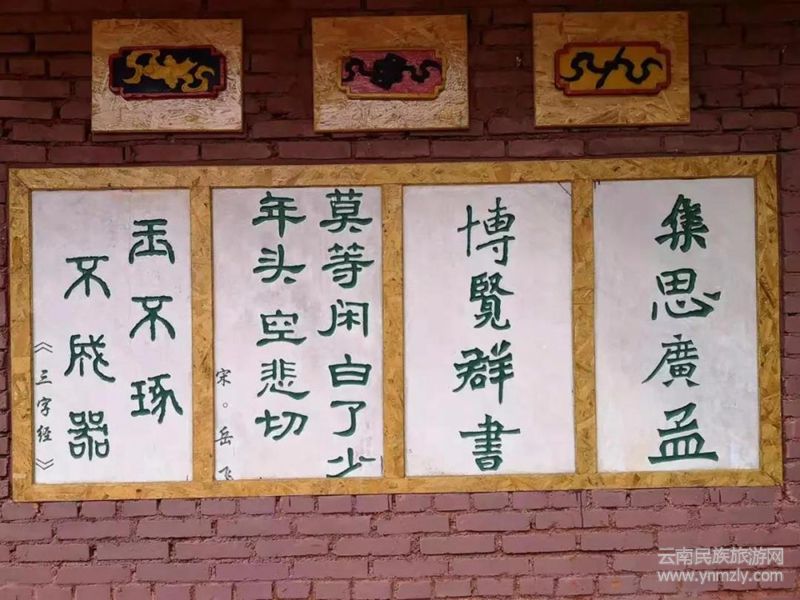 集思廣孟
博覽群書
莫等闲白了少
年头空悲切
宋。岳飞
玉不琢
不成器
《三字经》
云南民族旅游网
www.ynmzly.com